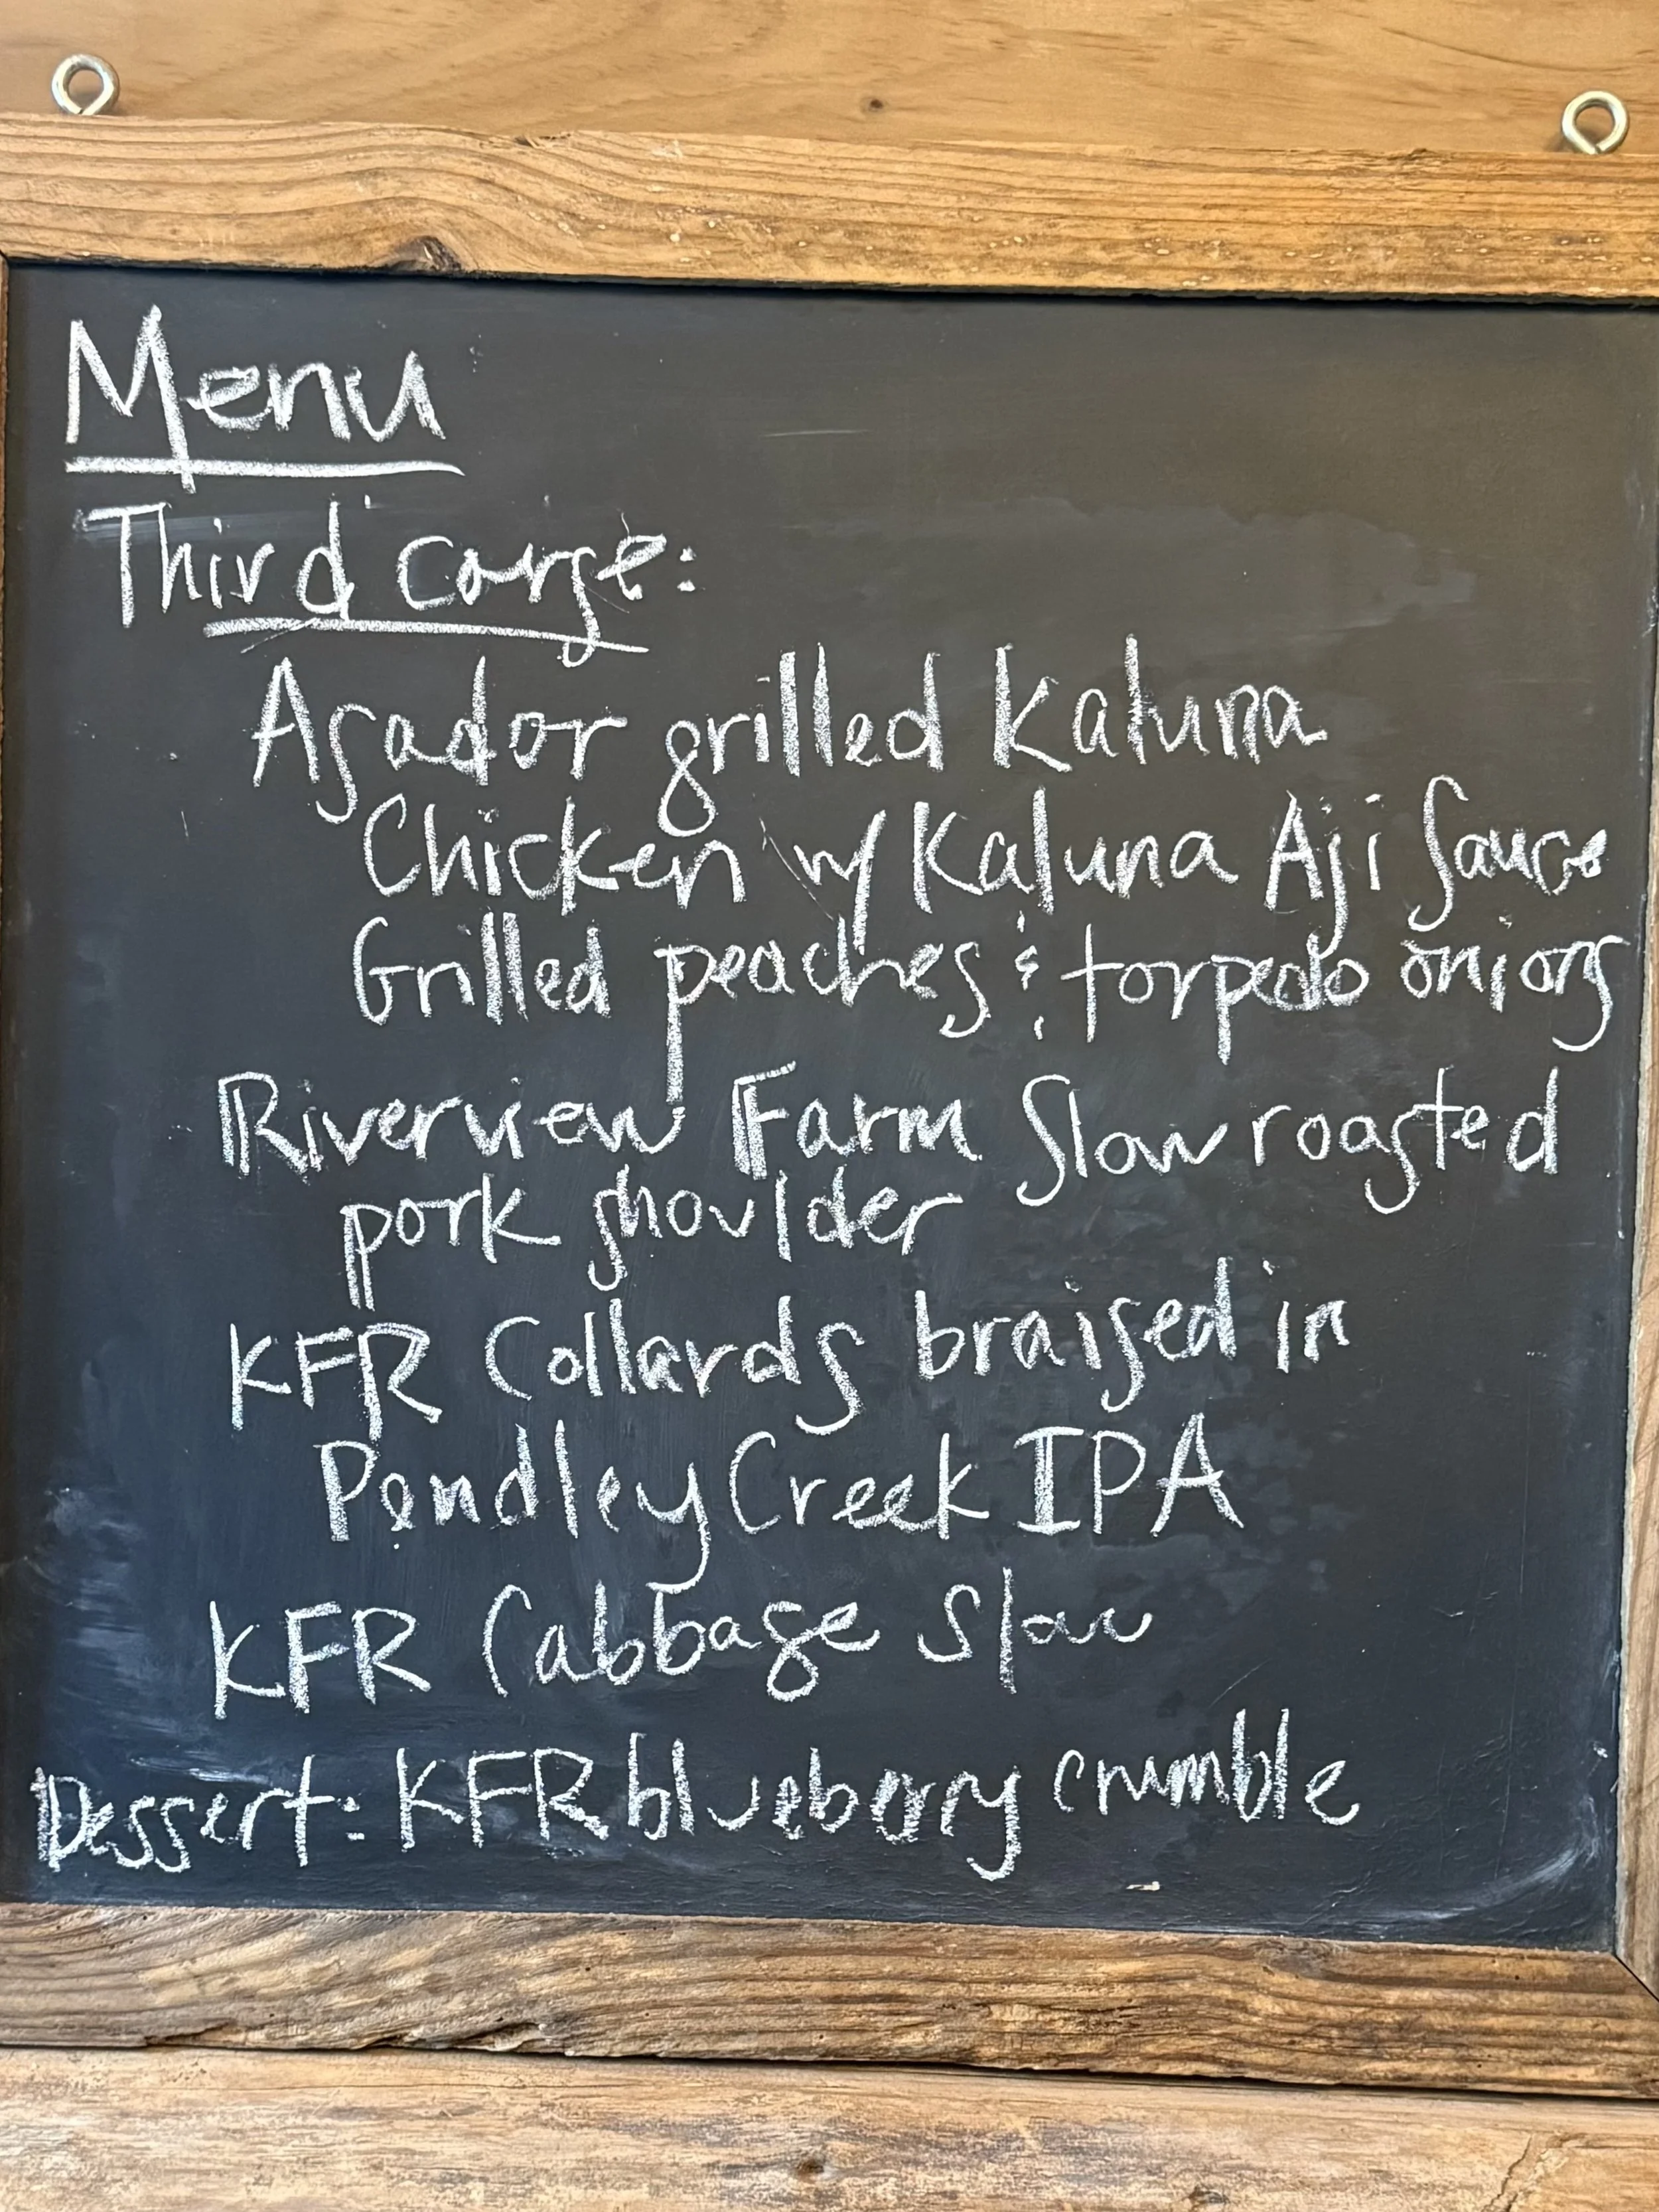 Menu
Third corse:
Asador grilled Kaluna
Chicken w/ Kaluna Aji Sauce
Grilled peaches & torpedo onions
Riverview Farm Slow roasted
pork shoulder
KFR Collards braised in
Pendley Creek IPA
KFR Cabbage Slaw
Dessert: KFR blueberry crumble